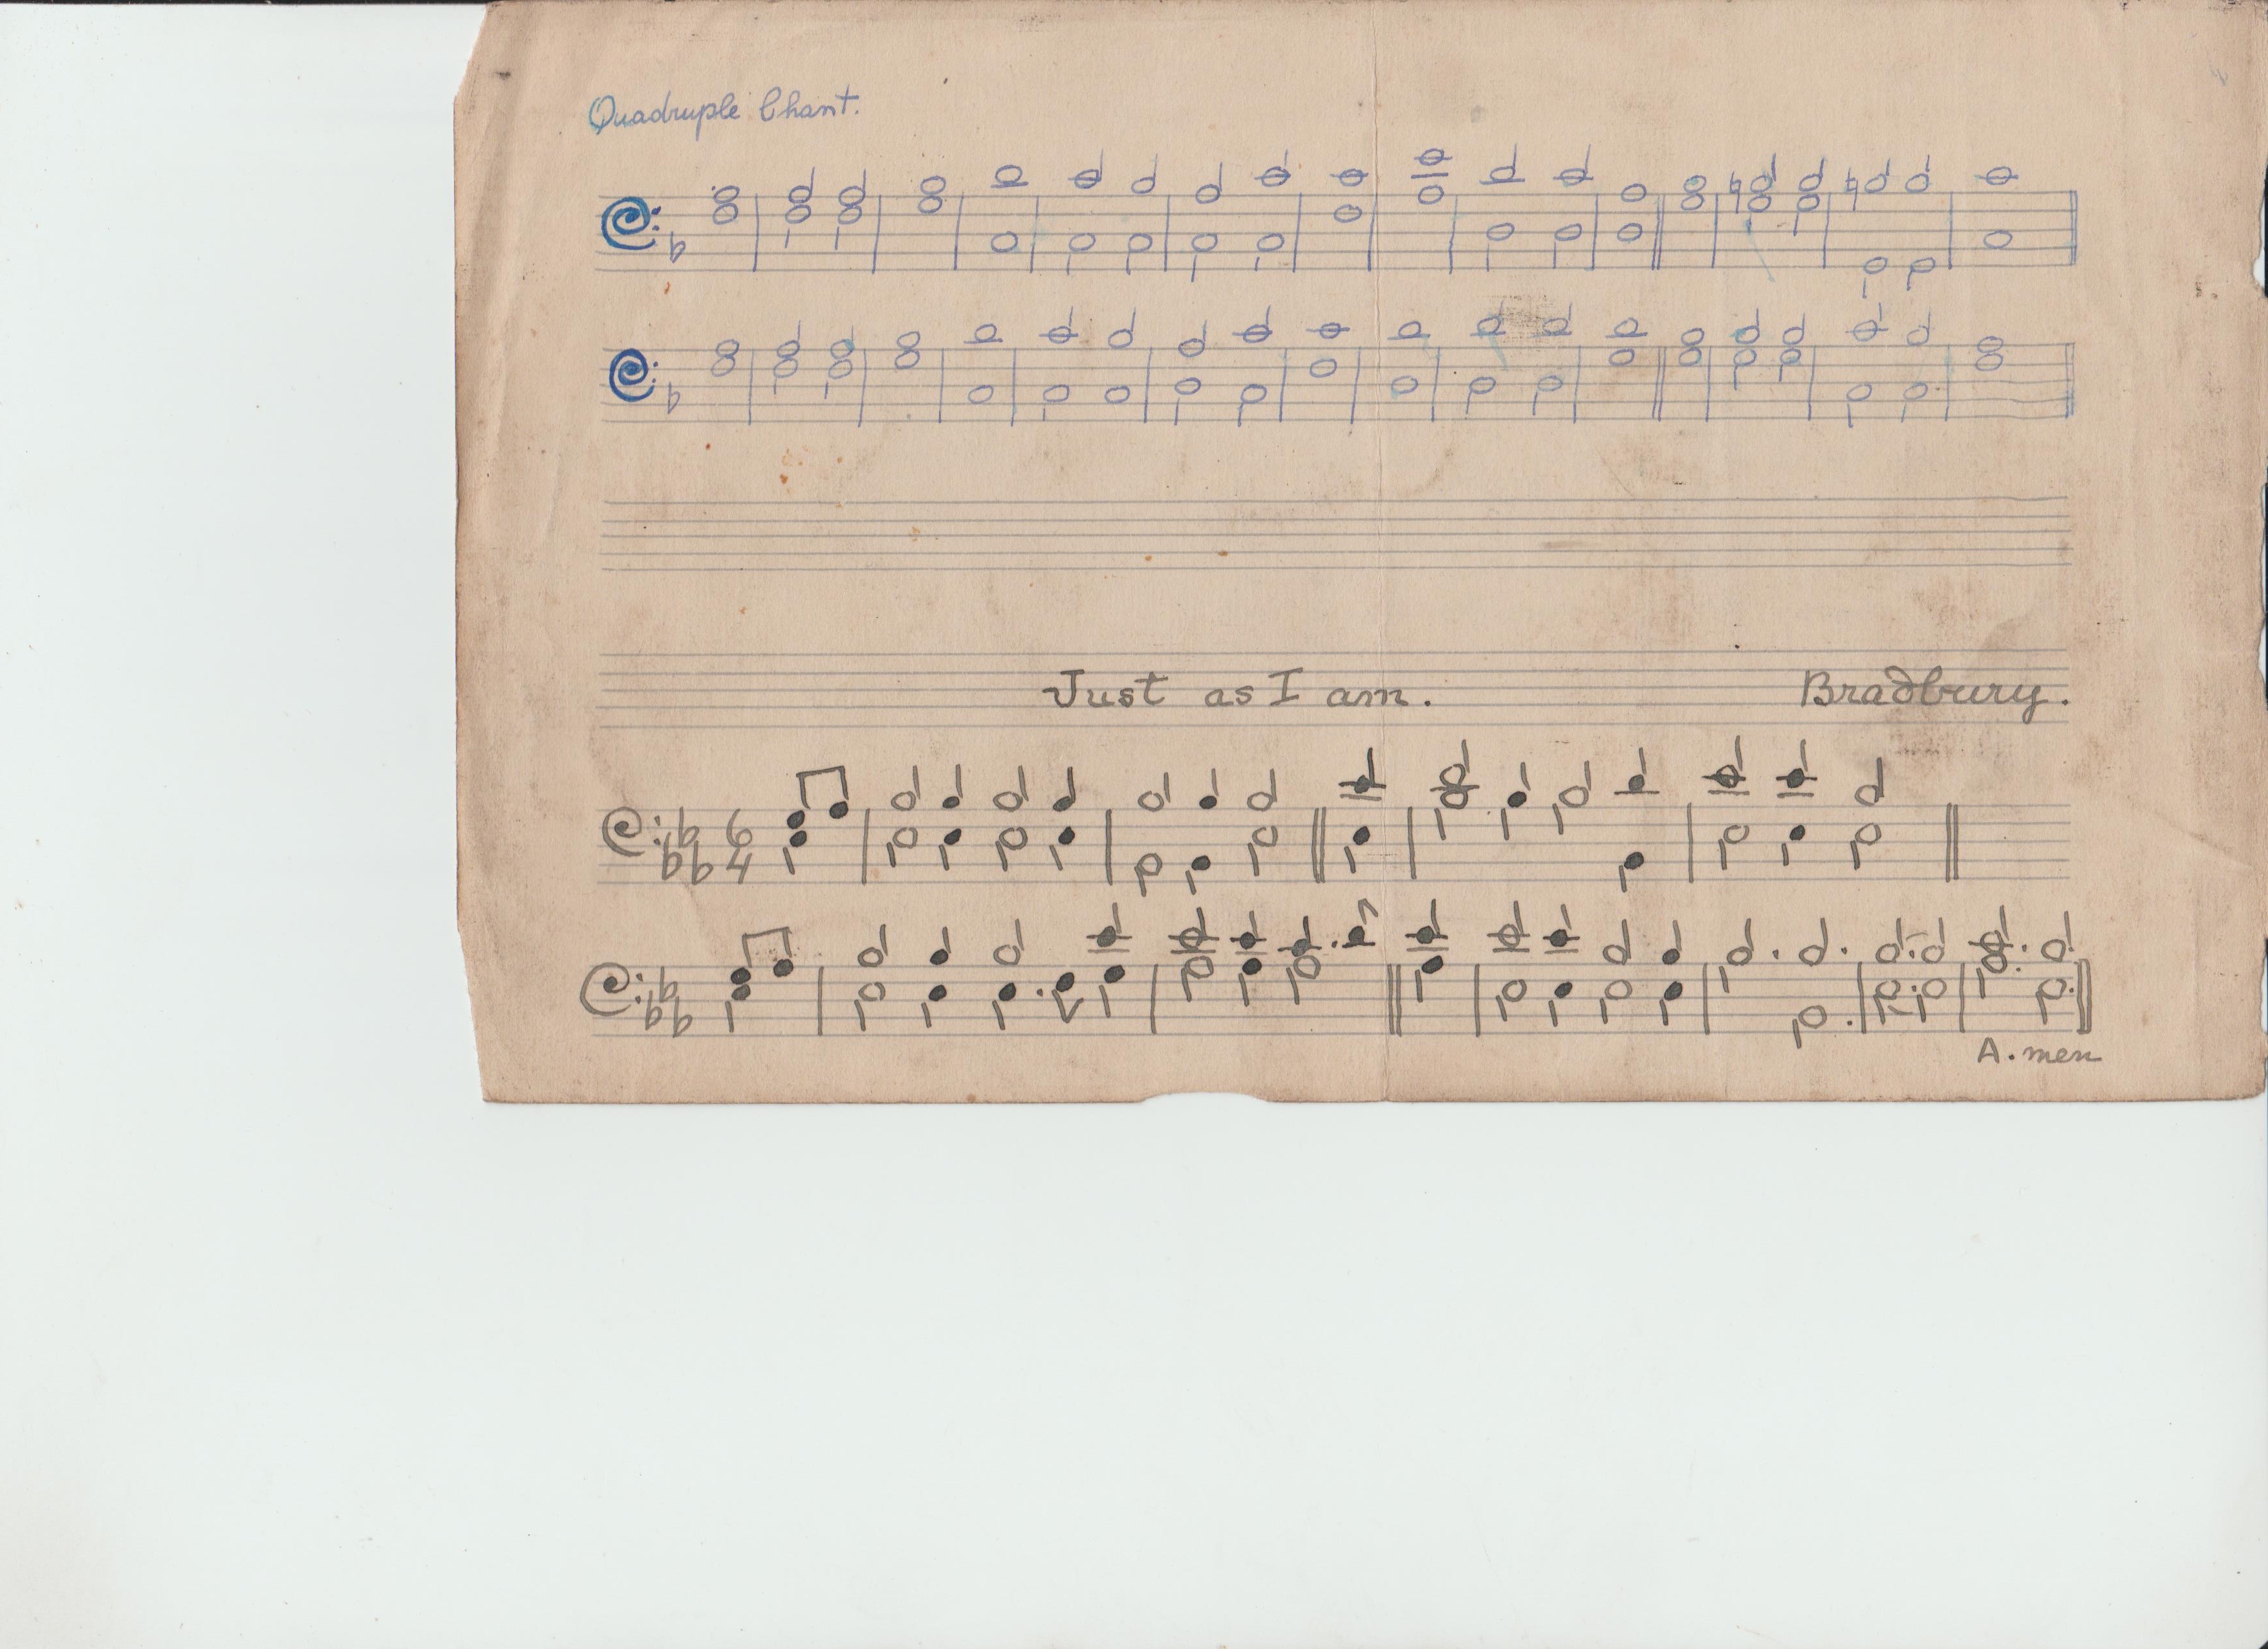 Quadruple Chant.
Just as I am. Bradbury.
6
4
A. men